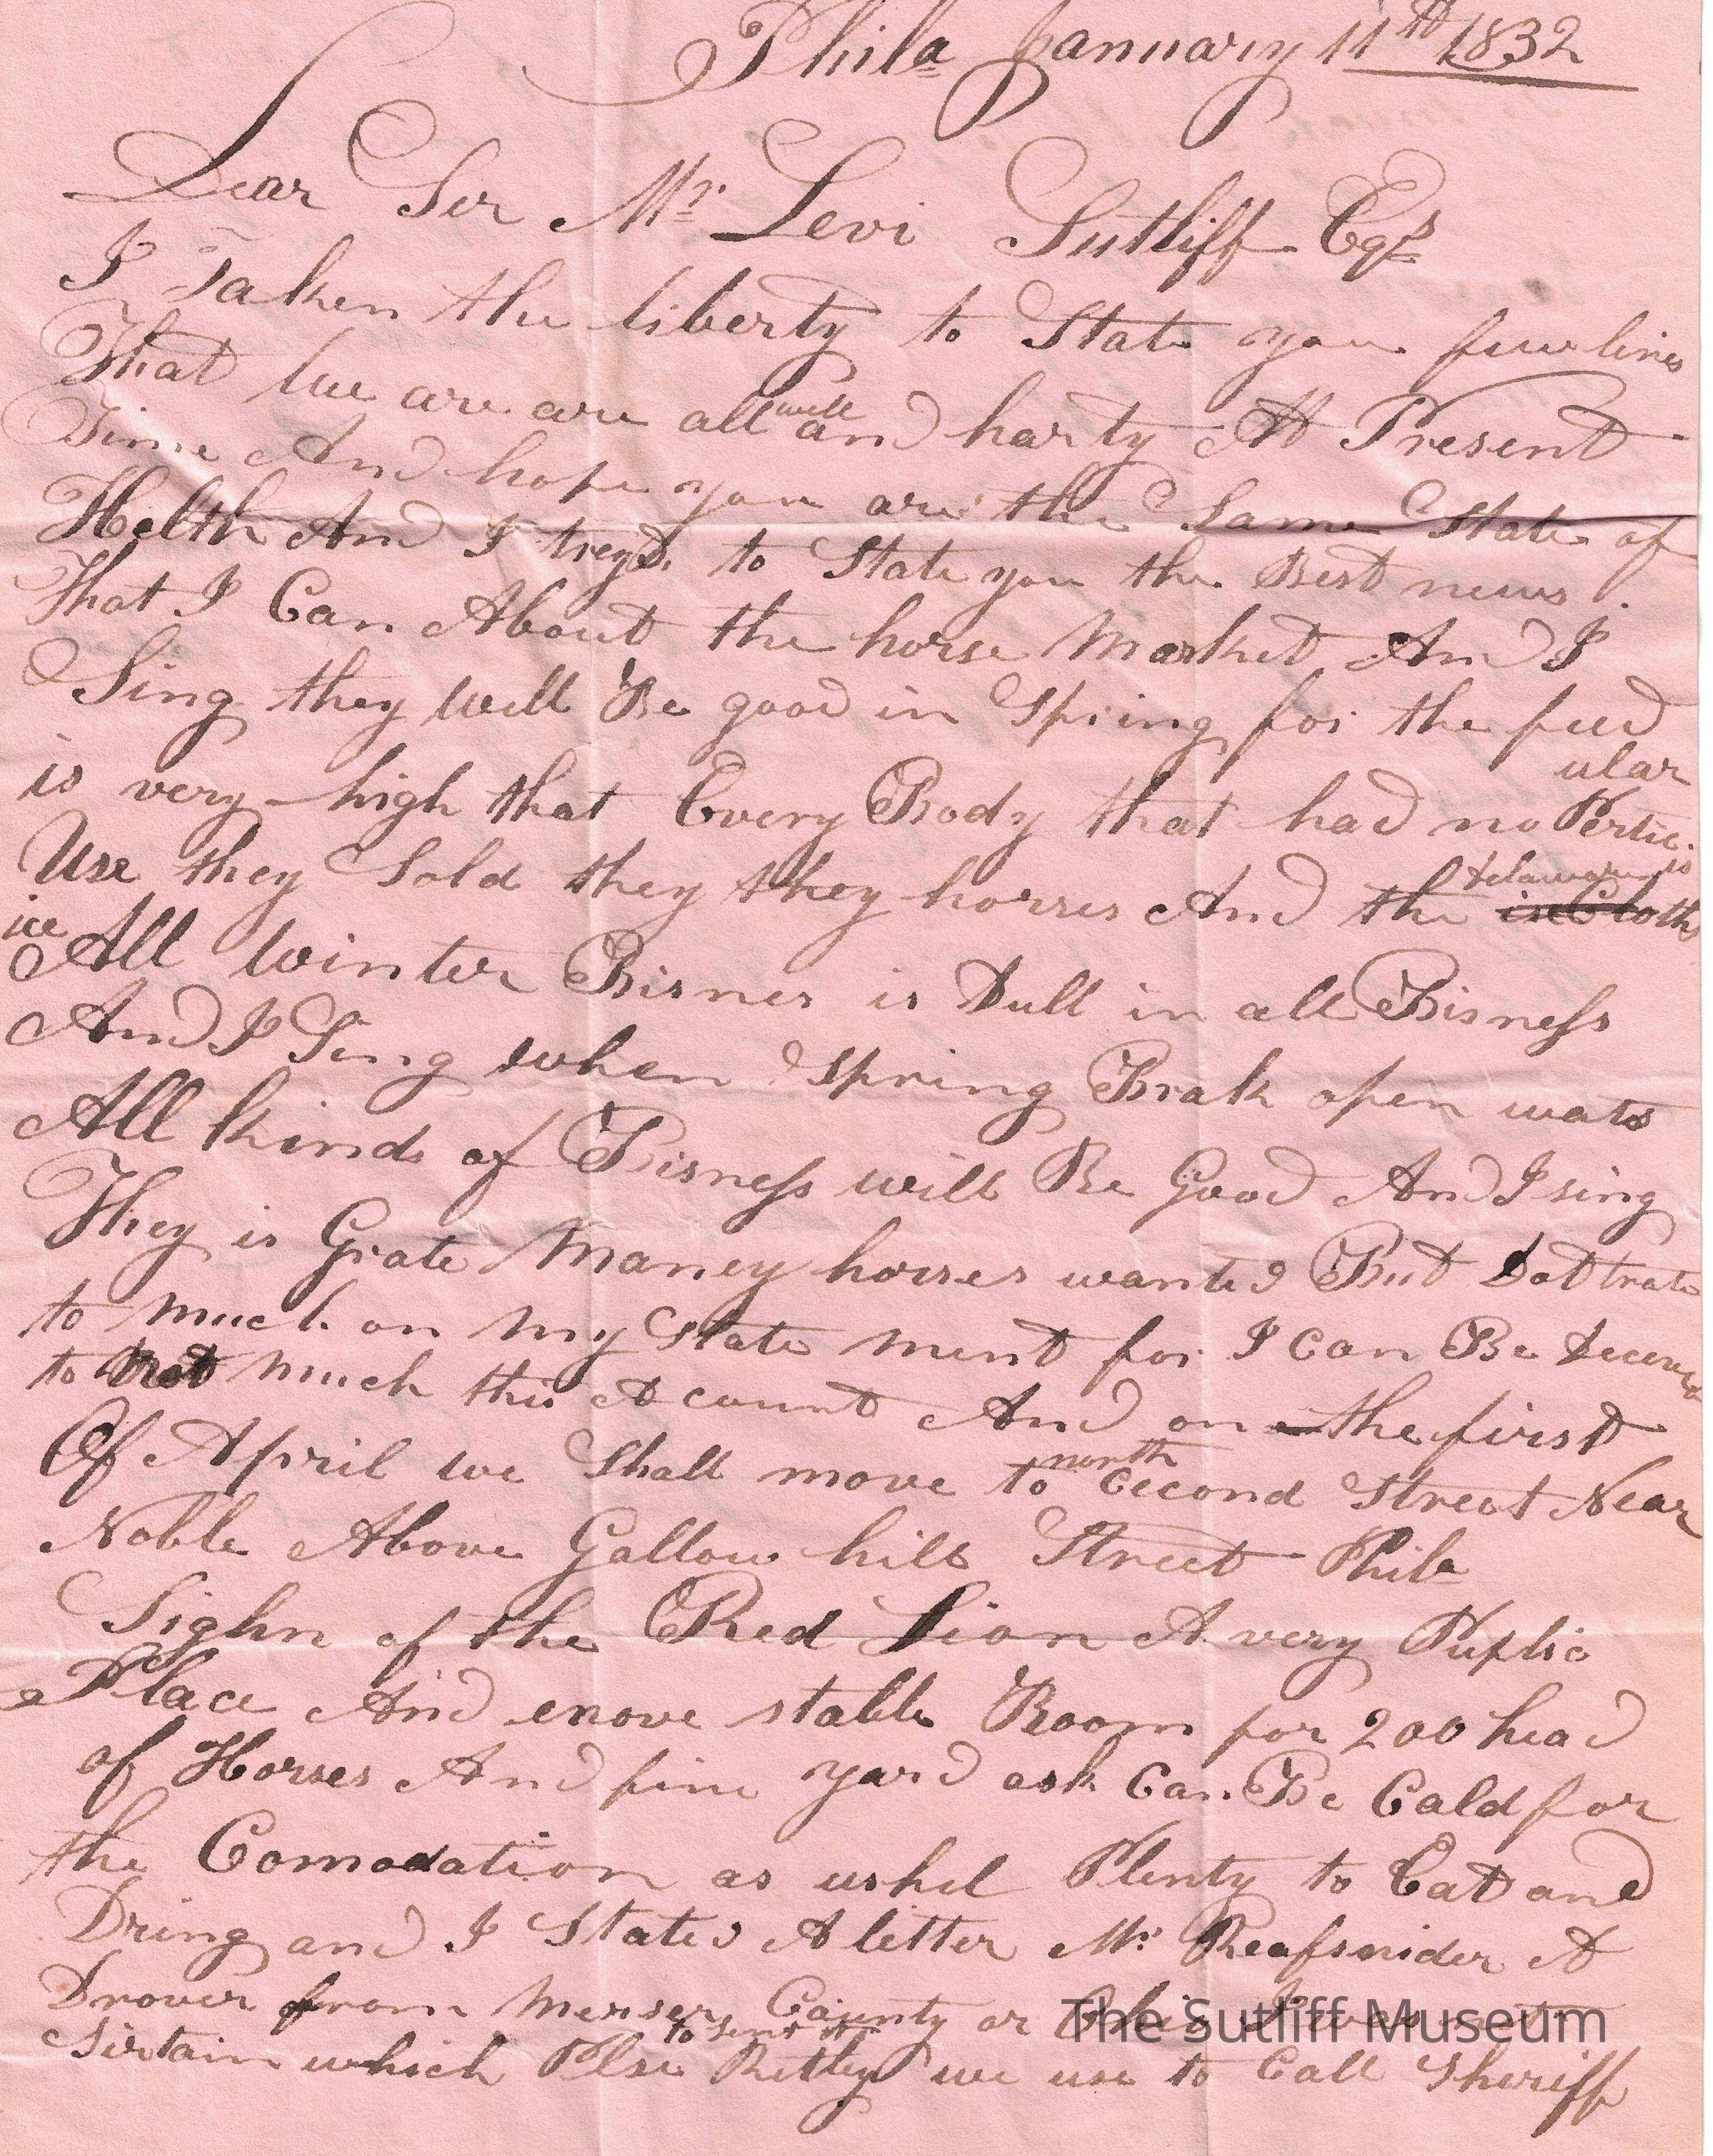 Phila January 11th 1832
Dear Sir Mr Levi Sutliff Eqr
I Taken the liberty to State you few lines
That we are are all well and harty At Present
Time And hope you are the Same State of
Helth And I treyd to State you the Best news
That I Can About the horse Market And I
Sing they Will Be good in Spring for the feed
is very high that Every Body that had no Perticular
Use they Sold they they horses And the delaware is
ice All Winter Bisnes is Dull in all Bisness
And I Sing when Spring Brak open wats
All kinds of Bisness will Be Good And I sing
They is Grate Maney horses wanted But Dot trate
to much on my State ment for I Can Be deceved
to much this Acount And on the first
Of April we Shall move to north Cecond Street Near
Noble Above Gallow hill Street Phila
Sighn of the Red Lion A very Puplic
Place And enove stable Room for 200 head
of Horses And fine yard ask Can Be Cald for
the Comodation as ushel Plenty to Eat and
Dring and I Stated A letter Mr Reafsnider A
Drover from Merser County or Ohio I was not
Sirtain which Plse to sent it we use to Call Sheriff
The Sutliff Museum